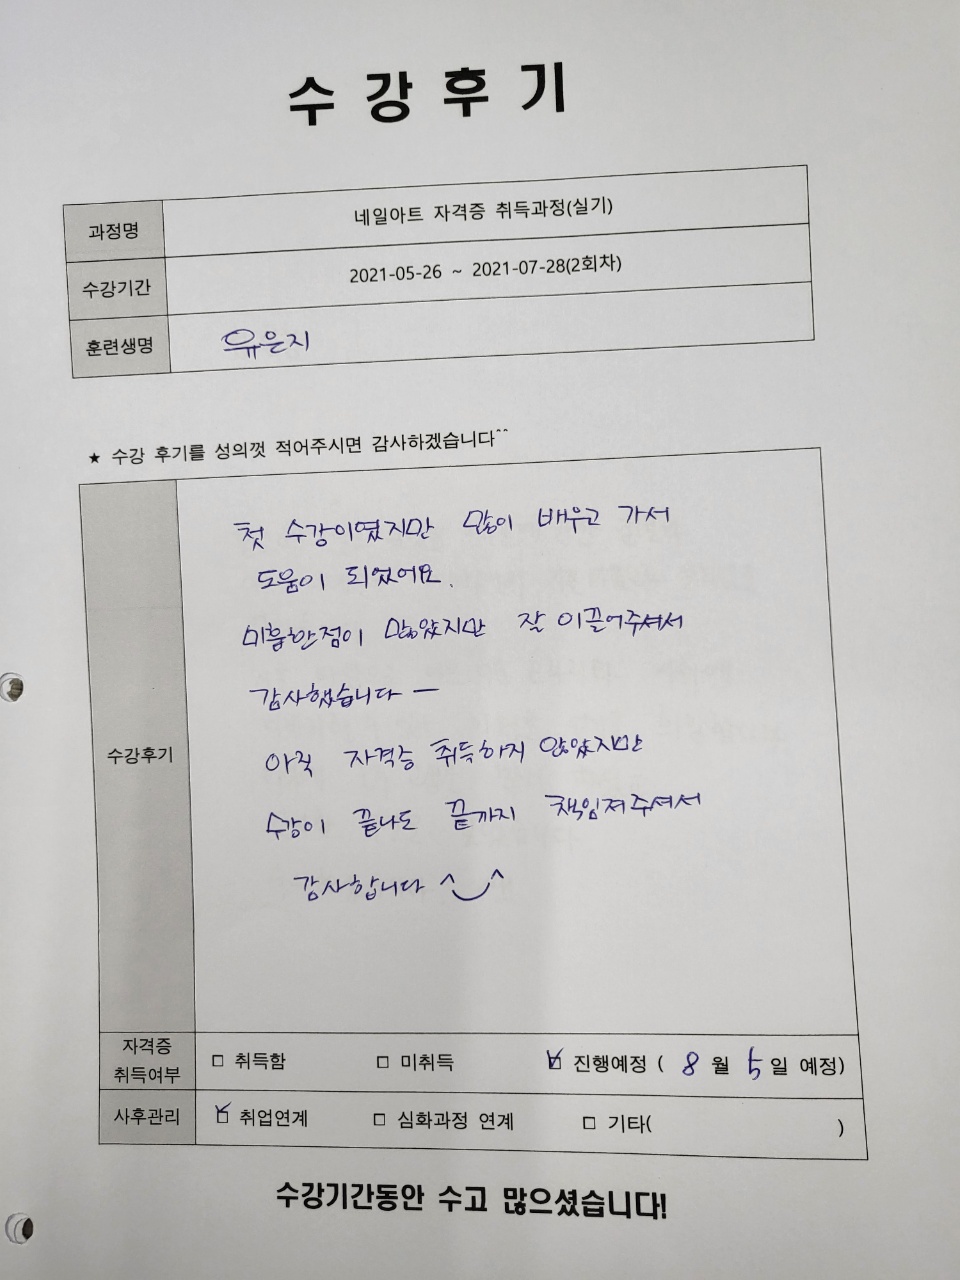 수강후기
과정명 네일아트 자격증 취득과정(실기)
수강기간 2021-05-26 ~ 2021-07-28(2회차)
훈련생명 유은지
★ 수강 후기를 성의껏 적어주시면 감사하겠습니다^^
첫 수강이였지만 많이 배우고 가서
도움이 되었어요.
미흡한점이 많았지만 잘 이끌어주셔서
감사했습니다 ㅡ
수강후기
아직 자격증 취득하지 않았지만
수강이 끝나도 끝까지 책임져주셔서
감사합니다 ^‿^
자격증
취득여부
□ 취득함 □ 미취득 ☑ 진행예정 ( 8 월 9 일 예정)
사후관리 ☑ 취업연계 □ 심화과정 연계 □ 기타( )
수강기간동안 수고 많으셨습니다!